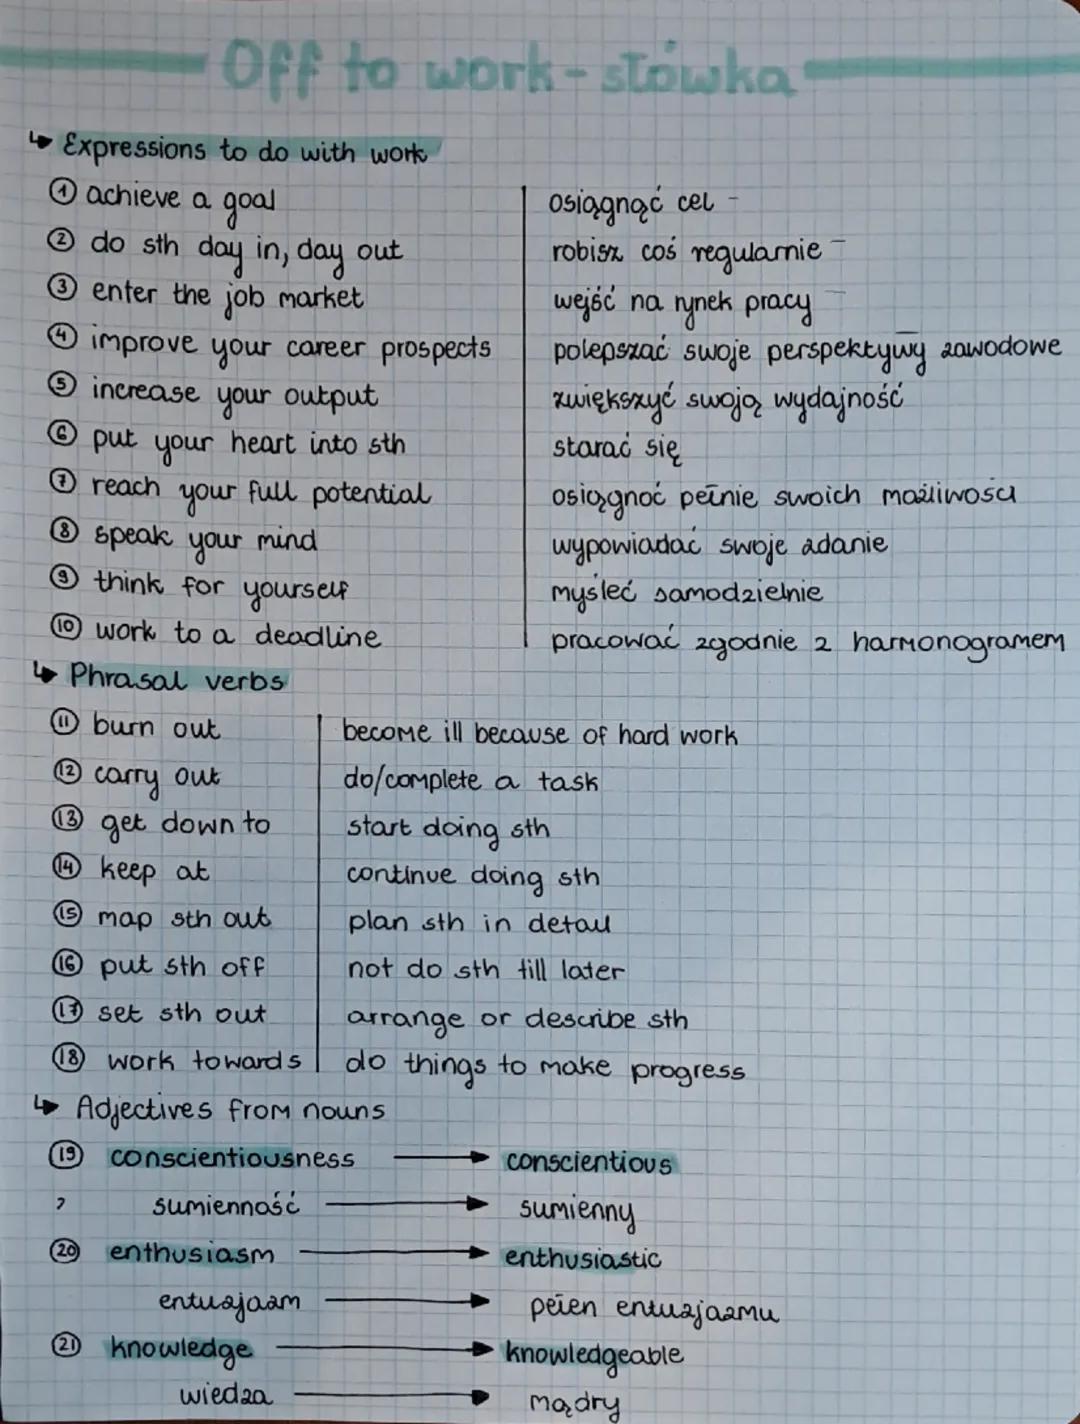 Off to work - słówka
↳ Expressions to do with work
① achieve a goal osiągnąć cel -
② do sth day in, day out robisz coś regularnie -
③ enter the job market wejść na rynek pracy -
④ improve your career prospects polepszać swoje perspektywy zawodowe
⑤ increase your output zwiększyć swoją wydajność
⑥ put your heart into sth starać się
⑦ reach your full potential osiągnąć pełnie swoich możliwości
⑧ speak your mind wypowiadać swoje zdanie
⑨ think for yourself myśleć samodzielnie
⑩ work to a deadline pracować zgodnie z harmonogramem
↳ Phrasal verbs
⑪ burn out become ill because of hard work
⑫ carry out do/complete a task
⑬ get down to start doing sth
⑭ keep at continue doing sth
⑮ map sth out plan sth in detail
⑯ put sth off not do sth till later
⑰ set sth out arrange or describe sth
⑱ work towards do things to make progress
↳ Adjectives from nouns
⑲ conscientiousness → conscientious
? sumienność → sumienny
⑳ enthusiasm → enthusiastic
entuzjazm → pełen entuzjazmu
㉑ knowledge → knowledgeable
wiedza → mądry